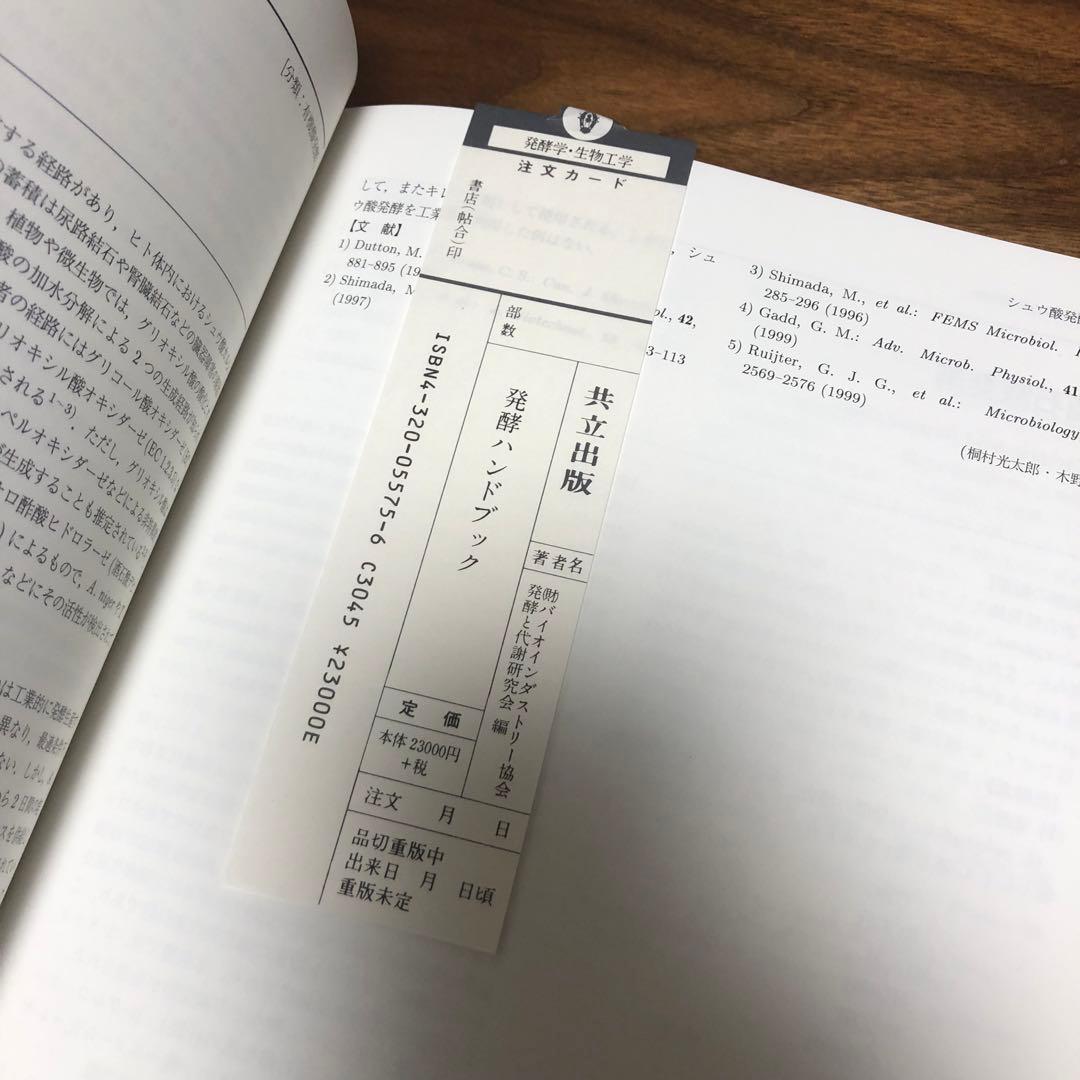 [分類:有
する経路があり,ヒト体内におけるシュウ
の蓄積は尿路結石や腎臓結石などの
植物や微生物では,グリオキシル酸の
酸の加水分解による2つの生成経路が
者の経路にはグリコール酸オキシダーゼ
リオキシル酸オキシダーゼ(EC 1.2.3.
される1~3).ただし,グリオキシル酸
ペルオキシダーゼなどによる非
が生成することも推定されている
キロ酢酸ヒドロラーゼ
)によるもので,A. niger や
などにその活性が検出されて
は工業的に発酵生産
異なり,最適
ない.しかし,
ら2日間の
スを供給
れて
発酵学・生物工学
注文カード
書店(帖合)印
部数
共立出版
発酵ハンドブック
著者名
(財)バイオインダストリー協会
発酵と代謝研究会 編
ISBN4-320-05575-6 C3045 ¥23000E
定価
本体 23000円
+税
注文 月 日
品切重版中
出来日 月 日頃
重版未定
して,またキレ
シュ
ウ酸発酵を工業
【文 献】
1) Dutton, M.
ol., 42,
881-895 (19
2) Shimada, M
3-113
(1997)
シュウ酸発酵
3) Shimada, M., et al.: FEMS Microbiol.
285-296 (1996)
4) Gadd, G. M.: Adv. Microb. Physiol., 41
(1999)
5) Ruijter, G. J. G., et al.: Microbiology
2569-2576 (1999)
(桐村光太郎・木野